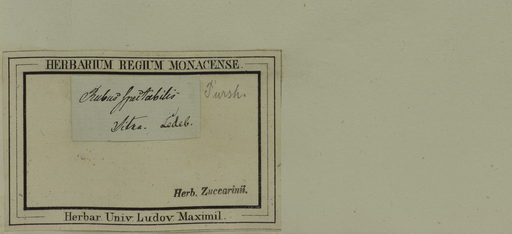 HERBARIUM REGIUM MONACENSE.
Rubus spectabilis Pursh.
Sitka. Ledeb.
Herb. Zuccarinii.
Herbar. Univ. Ludov. Maximil.